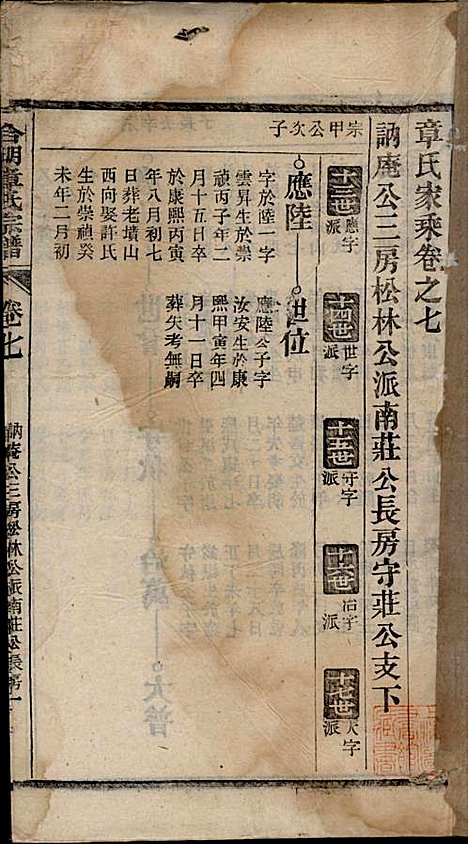 章氏家乘卷之七
訥庵公三房松林公派南莊公長房守莊公支下
十三世應字派
十四世世字派
十五世守字派
十六世治字派
十七世大字派
宗甲公次子
應陸
字於陸一字
雲昇生於崇
禎丙子年二
月十五日卒
於康熙丙寅
年八月初七
日葬老墳山
西向娶許氏
生於崇禎癸
未年二月初
世位
應陸公子字
汝安生於康
熙甲寅年四
月十一日卒
葬失考無嗣
合朋章氏宗譜
卷七
訥庵公三房松林公派南莊公長房一